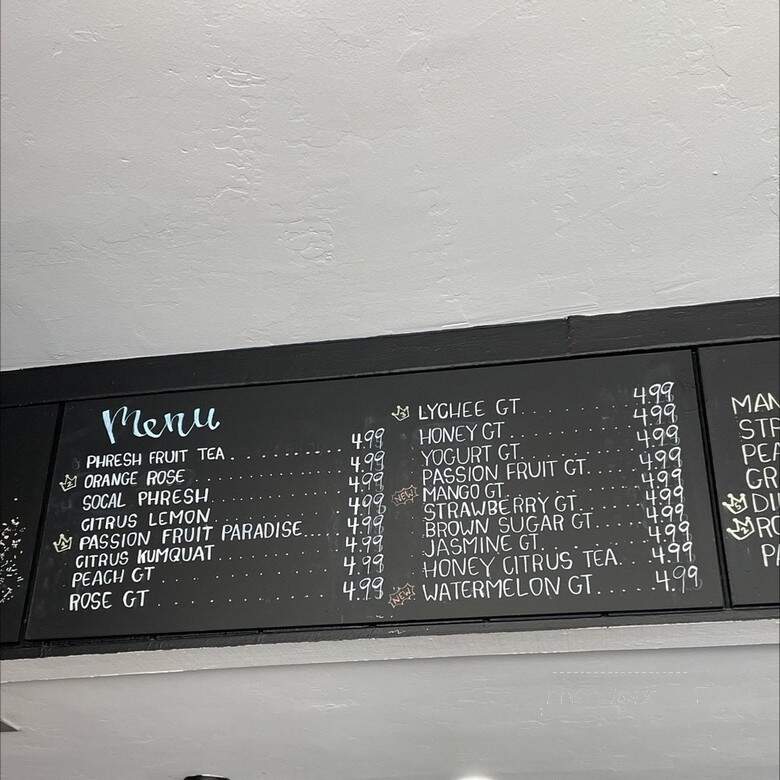 Menu
PHRESH FRUIT TEA.......... 4.99
ORANGE ROSE.......... 4.99
SOCAL PHRESH.......... 4.99
CITRUS LEMON.......... 4.99
PASSION FRUIT PARADISE... 4.99
CITRUS KUMQUAT.......... 4.99
PEACH GT.......... 4.99
ROSE GT.......... 4.99
LYCHEE GT.......... 4.99
HONEY GT.......... 4.99
YOGURT GT.......... 4.99
PASSION FRUIT GT..... 4.99
NEW MANGO GT.......... 4.99
STRAWBERRY GT....... 4.99
BROWN SUGAR GT.... 4.99
JASMINE GT.......... 4.99
HONEY CITRUS TEA... 4.99
NEW WATERMELON GT..... 4.99
MAN
STR
PEA
GR
DI
RO
PA